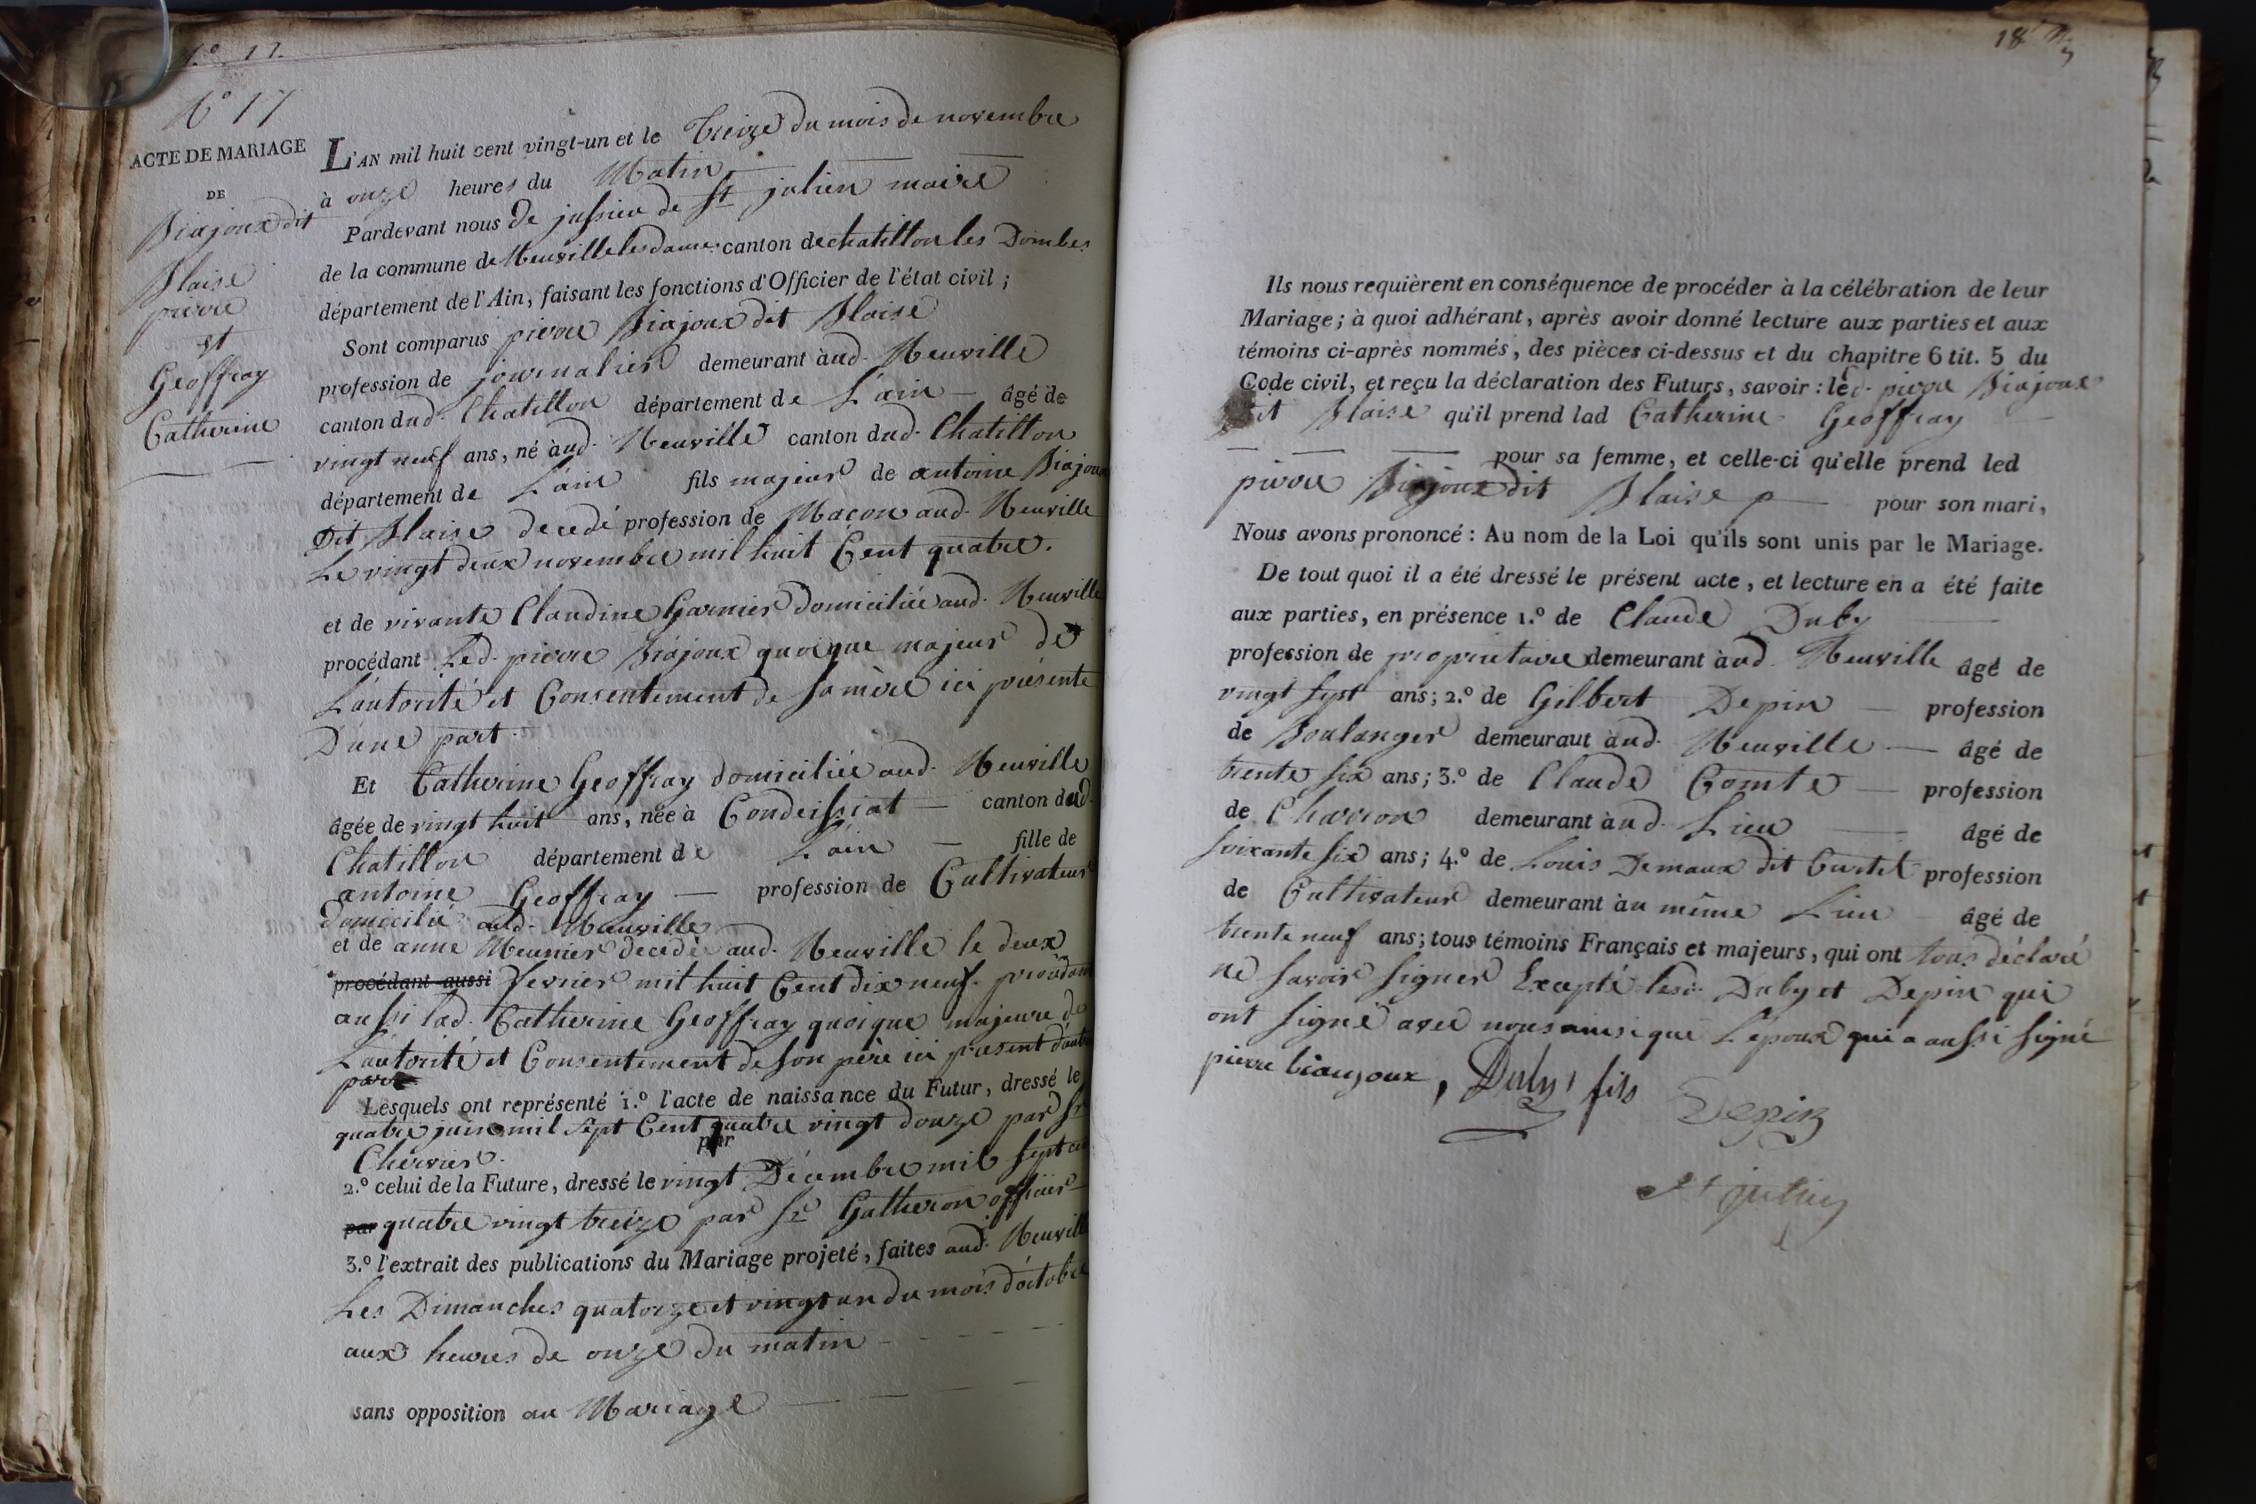 N.º 17.
N.º 17
ACTE DE MARIAGE
DE
Biajoux dit
Blaise
pierre
et
Geoffray
Catherine
L'AN mil huit cent vingt-un et le Treize du mois de novembre
à onze heures du Matin
Pardevant nous De jussieu de St julien maire
de la commune de Neuville les dames canton de chatillon les Dombes
département de l'Ain, faisant les fonctions d'Officier de l'état civil ;
Sont comparus pierre Biajoux dit Blaise
profession de journalier demeurant aud. Neuville
canton dud. Chatillon département de L'ain âgé de
vingt neuf ans, né aud. Neuville canton dud. Chatillon
département de L'ain fils majeur de antoine Biajoux
Dit Blaise decedé profession de Macon aud. Neuville
Le vingt deux novembre mil huit Cent quatre.
et de vivante Claudine Garnier domiciliée aud. Neuville
procédant Led. pierre Biajoux quoique majeur de
L'autorité et Consentement de sa mère ici présente
D'une part.
Et Catherine Geoffray domiciliée aud. Neuville
âgée de vingt huit ans, née à Condeissiat canton dud.
Chatillon département de L'ain fille de
antoine Geoffray profession de Cultivateur
domicilié aud. Neuville
et de anne Meunier decedée aud. Neuville le deux
procédant aussi fevrier mil huit Cent dix neuf. procédant
aussi lad. Catherine Geoffray quoique majeure de
L'autorité et Consentement de son père ici présent d'autre
part
Lesquels ont représenté 1.º l'acte de naissance du Futur, dressé le
quatre juin mil sept Cent quatre vingt douze par Sr
Chervier. par
2.º celui de la Future, dressé le vingt Décembre mil sept cent
par quatre vingt treize par Sr Gatheron officier
3.º l'extrait des publications du Mariage projeté, faites aud. Neuville
Les Dimanches quatorze et vingt un du mois d'octobre
aux heures de onze du matin
sans opposition au Mariage
18
Ils nous requièrent en conséquence de procéder à la célébration de leur
Mariage ; à quoi adhérant, après avoir donné lecture aux parties et aux
témoins ci-après nommés, des pièces ci-dessus et du chapitre 6 tit. 5 du
Code civil, et reçu la déclaration des Futurs, savoir : led. pierre Biajoux
dit Blaise qu'il prend lad Catherine Geoffray
pour sa femme, et celle-ci qu'elle prend led
pierre Biajoux dit Blaise pour son mari,
Nous avons prononcé : Au nom de la Loi qu'ils sont unis par le Mariage.
De tout quoi il a été dressé le présent acte, et lecture en a été faite
aux parties, en présence 1.º de Claude Duby
profession de proprietaire demeurant aud. Neuville âgé de
vingt sept ans ; 2.º de Gilbert Depin profession
de Boulanger demeuraut aud. Neuville âgé de
trente six ans ; 3.º de Claude Comte profession
de Charron demeurant aud. Lieu âgé de
soixante six ans ; 4.º de Louis Demaux dit Curtet profession
de Cultivateur demeurant au même Lieu âgé de
trente neuf ans ; tous témoins Français et majeurs, qui ont tous déclaré
ne savoir signer Excepté lesd. Duby et Depin qui
ont signé avec nous ainsi que L'époux qui a aussi signé
pierre biaujoux, Duby fils
Depin
St julien